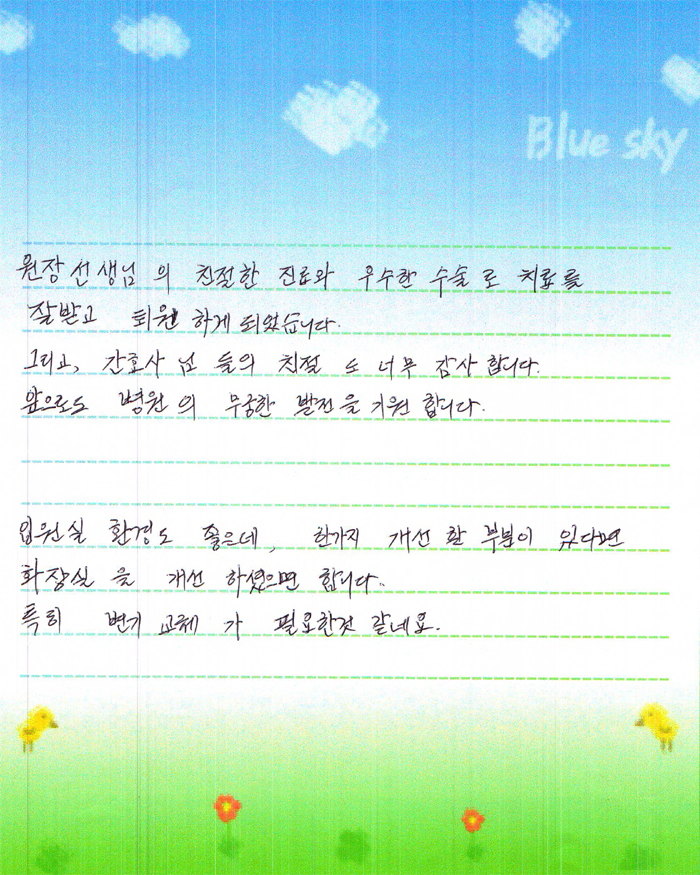 Blue sky
원장선생님 의 친절한 진료와 우수한 수술로 치료를
잘받고 퇴원 하게 되었습니다.
그리고, 간호사 님 들의 친절 도 너무 감사 합니다.
앞으로도 병원의 무궁한 발전을 기원 합니다.
입원실 환경도 좋은데, 한가지 개선 할 부분이 있다면
화장실 을 개선 하셨으면 합니다.
특히 변기 교체 가 필요한것 같네요.